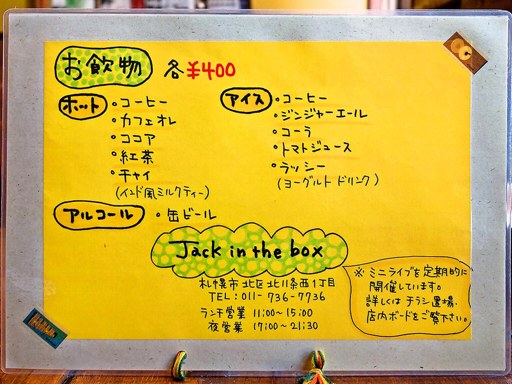 お飲物 各¥400
ホット
・コーヒー
・カフェオレ
・ココア
・紅茶
・チャイ
(インド風ミルクティー)
アイス
・コーヒー
・ジンジャーエール
・コーラ
・トマトジュース
・ラッシー
(ヨーグルトドリンク)
アルコール ・缶ビール
Jack in the box
札幌市北区北川条西1丁目
TEL:011-736-7736
ランチ営業 11:00~15:00
夜営業 17:00~21:30
※ ミニライブを定期的に
開催しています。
詳しくはチラシ置場、
店内ボードをご覧下さい。